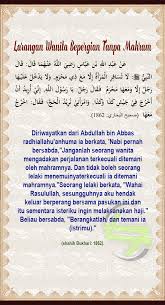 Larangan Wanita Bepergian Tanpa Mahram
عَنْ عَبْدِ اللهِ بْنِ عَبَّاسٍ رَضِيَ اللهُ عَنْهُمَا أَنَّهُ قَالَ: قَالَ
النَّبِيُّ ﷺ: لَا تُسَافِرِ الْمَرْأَةُ إِلَّا مَعَ ذِي مَحْرَمٍ، وَلَا يَدْخُلُ عَلَيْهَا
رَجُلٌ إِلَّا وَمَعَهَا مَحْرَمٌ. فَقَالَ رَجُلٌ: يَا رَسُولَ اللهِ، إِنِّي أُرِيدُ أَنْ
أَخْرُجَ فِي جَيْشِ كَذَا وَكَذَا، وَامْرَأَتِي تُرِيدُ الْحَجَّ؟ فَقَالَ: اخْرُجْ
مَعَهَا
Diriwayatkan dari Abdullah bin Abbas
radhiallahu'anhuma ia berkata, 'Nabi pernah
bersabda,"Janganlah seorang wanita
mengadakan perjalanan terkecuali ditemani
oleh mahramnya. Dan tidak boleh seorang
lelaki menemuinyaterkecuali ia ditemani
mahramnya."Seorang lelaki berkata, "Wahai
Rasulullah, sesungguhnya aku hendak
keluar berperang bersama pasukan ini dan
itu sementara isteriku ingin melaksanakan haji."
Beliau bersabda, "Berangkatlah dan temani ia
(istrimu)."
(shahih Bukhari: 1862)